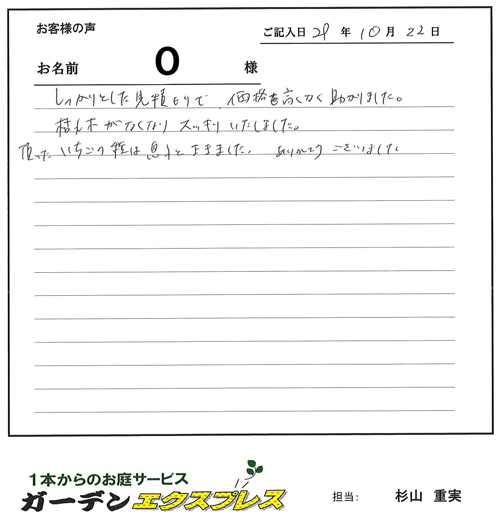 お客様の声
ご記入日 29 年 10 月 22 日
お名前 O 様
しっかりとした見積もりで、価格も高くなく助かりました。
植木がなくなりスッキリいたしました。
頂いた いちごの種は息子とまきました。 ありがとうございました
1本からのお庭サービス
ガーデンエクスプレス
担当: 杉山 重実